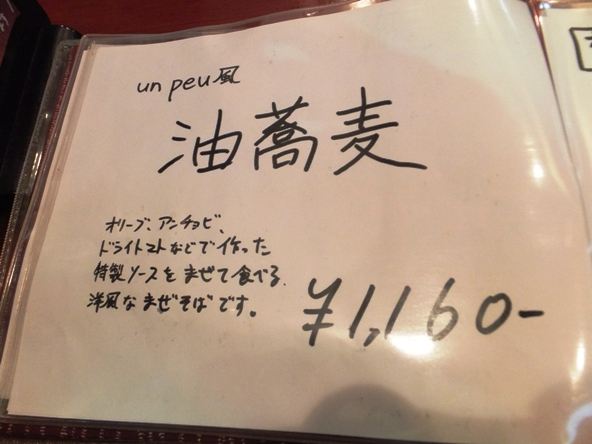 un peu風
油蕎麦
オリーブ、アンチョビ、
ドライトマトなどで作った
特製ソースをまぜて食べる、
洋風なまぜそばです。
¥1,160-